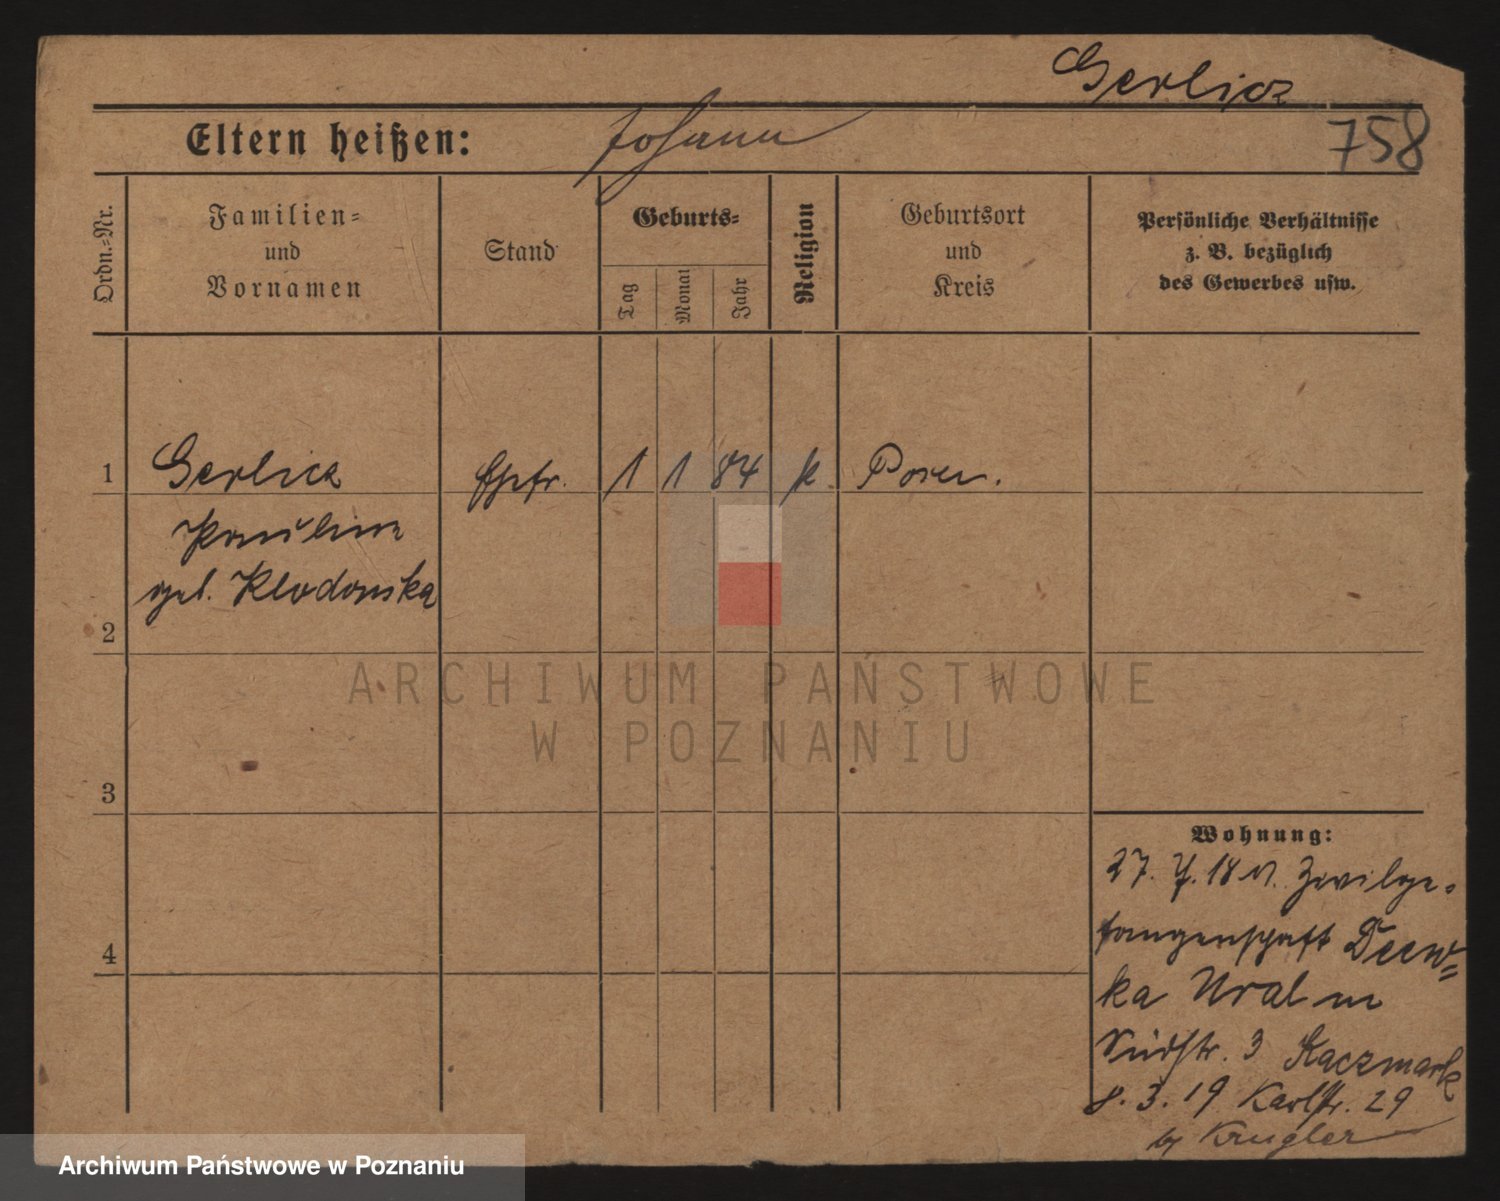 Gerlicz
Eltern heißen: Johann
758
Ordn.-Nr.
Familien-
und
Vornamen
Stand
Geburts-
Tag
Monat
Jahr
Religion
Geburtsort
und
Kreis
Persönliche Verhältnisse
z. B. bezüglich
des Gewerbes usw.
1 Gerlicz Ehefr. 1 1 84 k. Posen.
Pauline
geb. Klodonska
2
3
4
Wohnung:
27. 7. 18 v. Zivilge-
fangenschaft
ka Ural in
Südstr. 3 Kaczmark
8. 3. 19 Karlstr. 29
by Krugler
ARCHIWUM PAŃSTWOWE
W POZNANIU
Archiwum Państwowe w Poznaniu